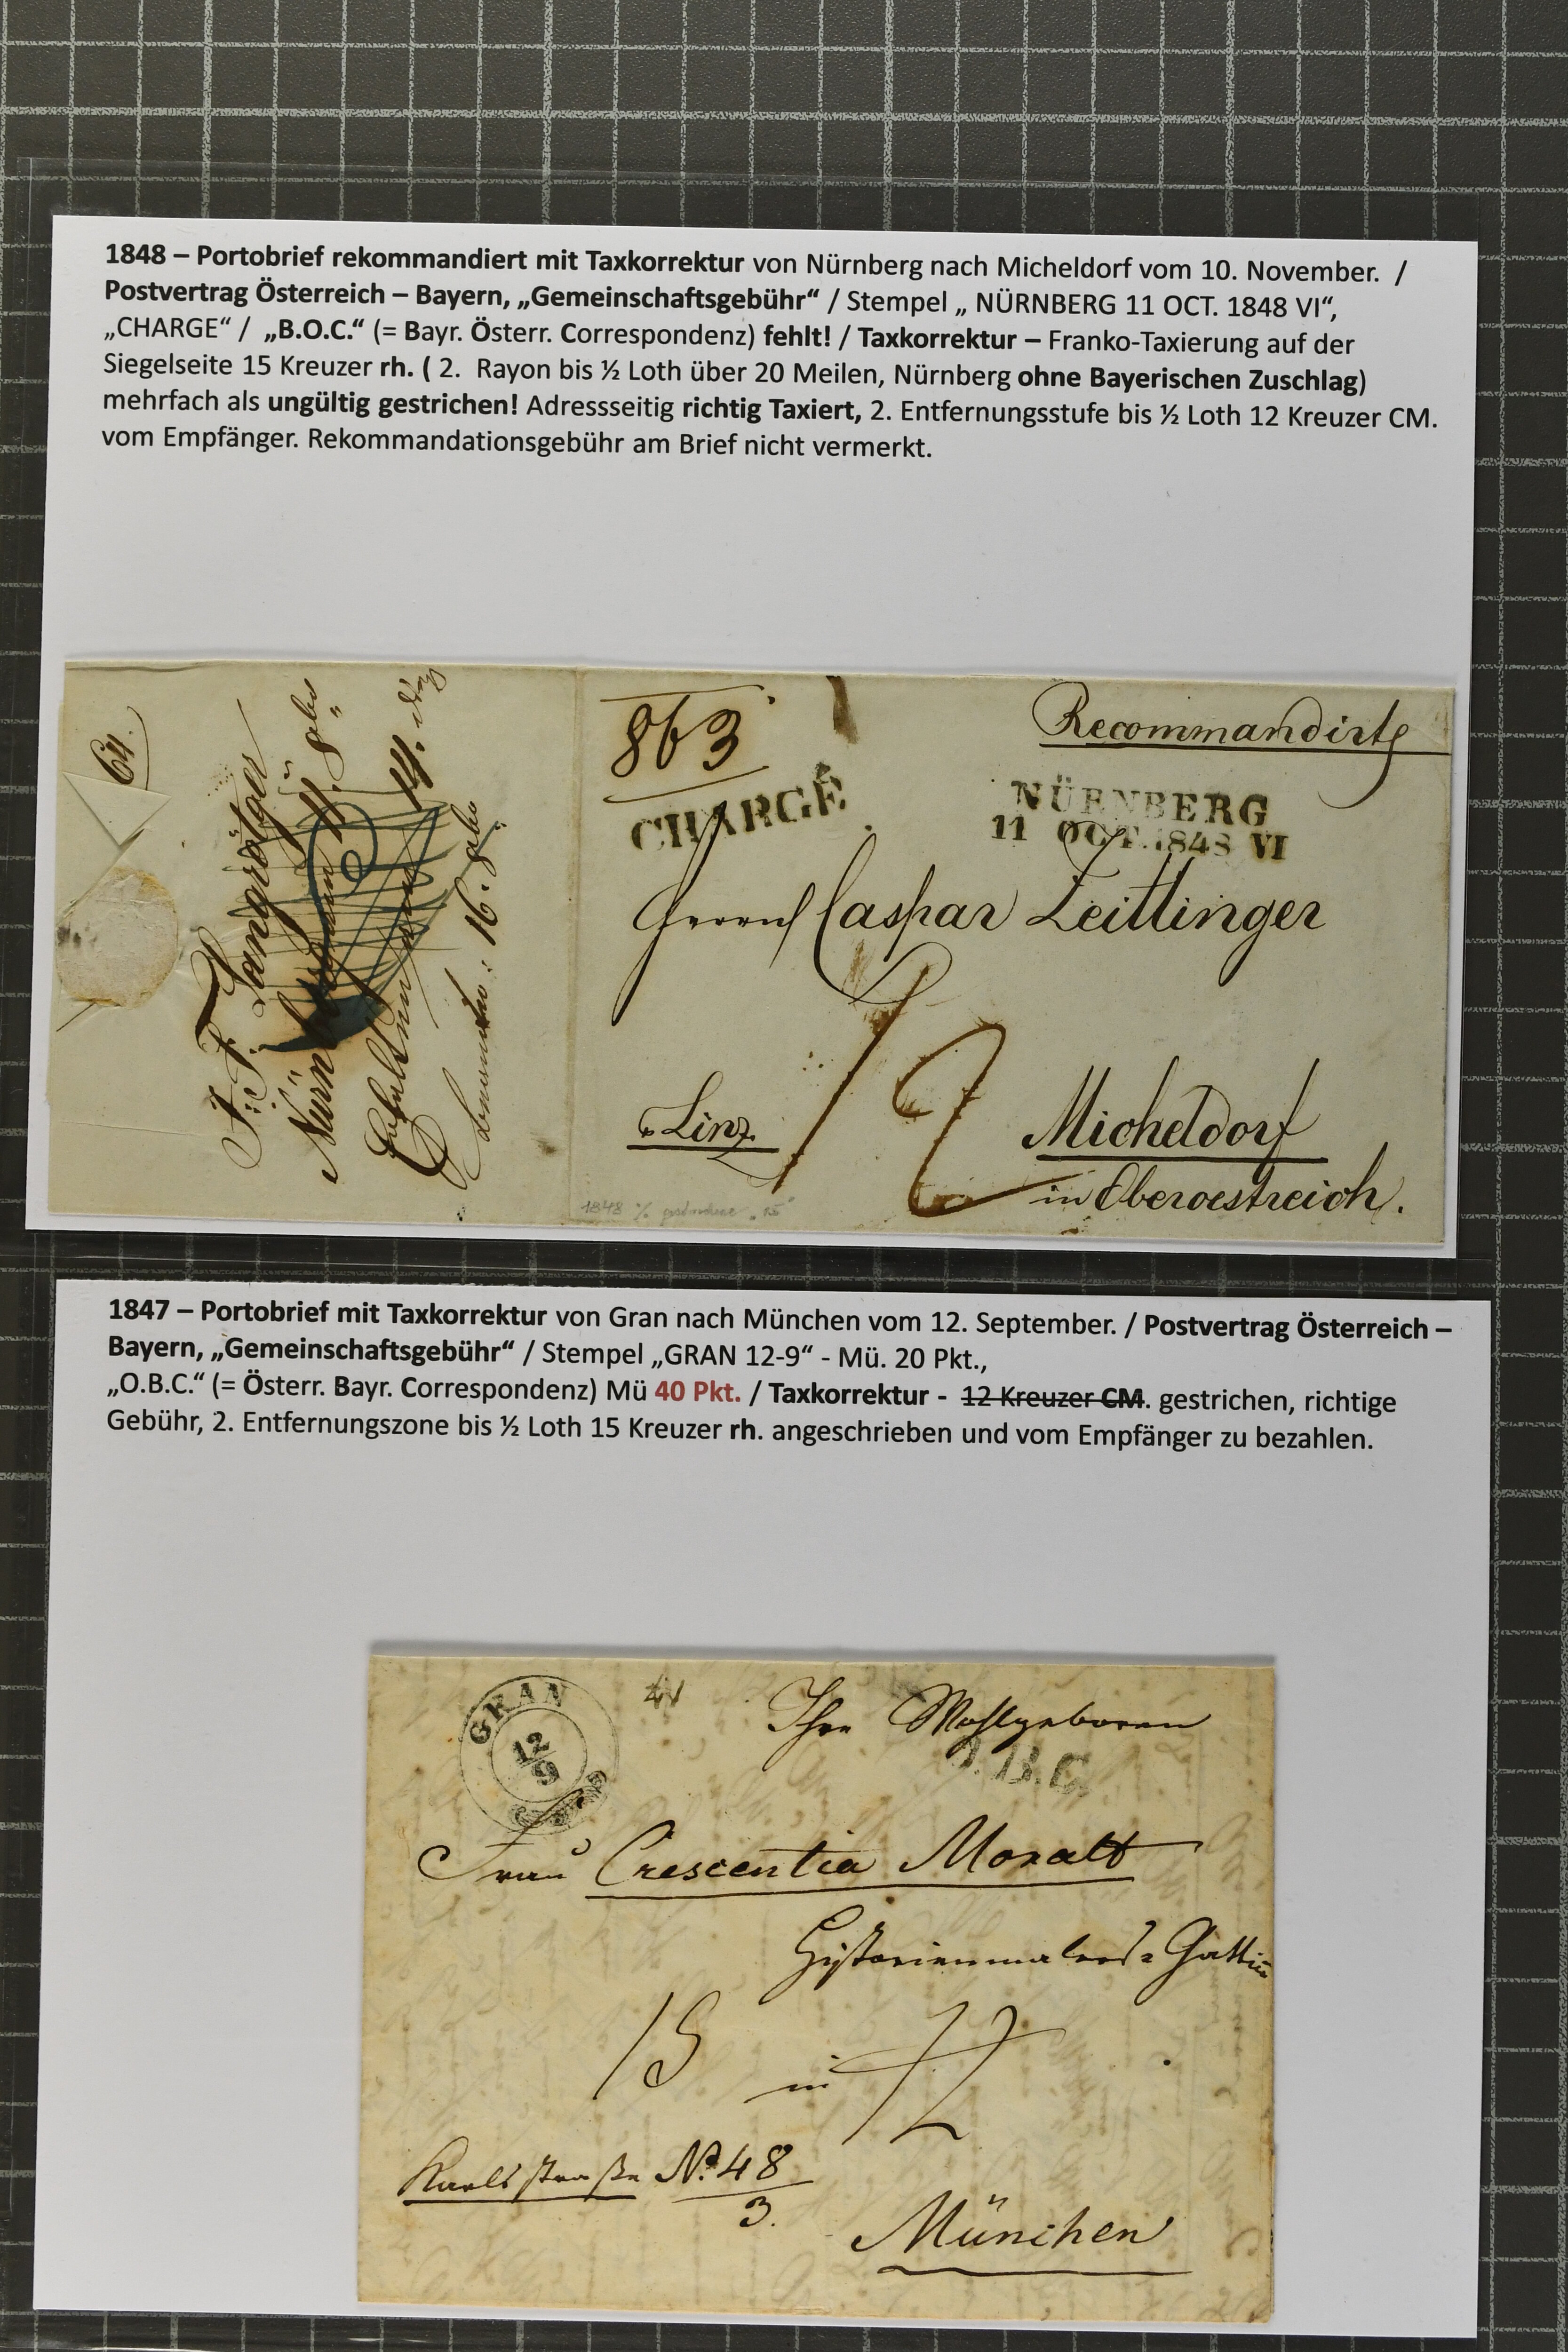 1848 – Portobrief rekommandiert mit Taxkorrektur von Nürnberg nach Micheldorf vom 10. November. /
Postvertrag Österreich – Bayern, „Gemeinschaftsgebühr“ / Stempel „ NÜRNBERG 11 OCT. 1848 VI“,
„CHARGE“ / „B.O.C.“ (= Bayr. Österr. Correspondenz) fehlt! / Taxkorrektur – Franko-Taxierung auf der
Siegelseite 15 Kreuzer rh. ( 2. Rayon bis ½ Loth über 20 Meilen, Nürnberg ohne Bayerischen Zuschlag)
mehrfach als ungültig gestrichen! Adressseitig richtig Taxiert, 2. Entfernungsstufe bis ½ Loth 12 Kreuzer CM.
vom Empfänger. Rekommandationsgebühr am Brief nicht vermerkt.
64.
Nürnberg
14.
16.
863
Recommandirte
CHARGÉ.
NÜRNBERG
11 OCT. 1848 VI
Herrn Caspar Zeitlinger
12
Linz
Micheldorf
in Oberoestreich.
1847 – Portobrief mit Taxkorrektur von Gran nach München vom 12. September. / Postvertrag Österreich –
Bayern, „Gemeinschaftsgebühr“ / Stempel „GRAN 12-9“ - Mü. 20 Pkt.,
„O.B.C.“ (= Österr. Bayr. Correspondenz) Mü 40 Pkt. / Taxkorrektur - 12 Kreuzer CM. gestrichen, richtige
Gebühr, 2. Entfernungszone bis ½ Loth 15 Kreuzer rh. angeschrieben und vom Empfänger zu bezahlen.
GRAN
12
9
Ihre Wohlgeboren
O.B.C.
Frau Crescentia Moralt
Historienmalers=Gattin
15 in 12
Karlsstraße No. 48
3.
München